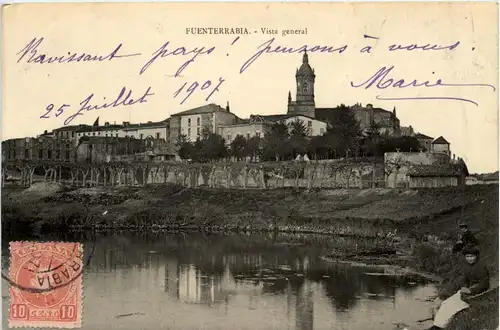 FUENTERRABIA. - Vista general
Ravissant pays! pensons à vous.
25 Juillet 1907 Marie
10 10